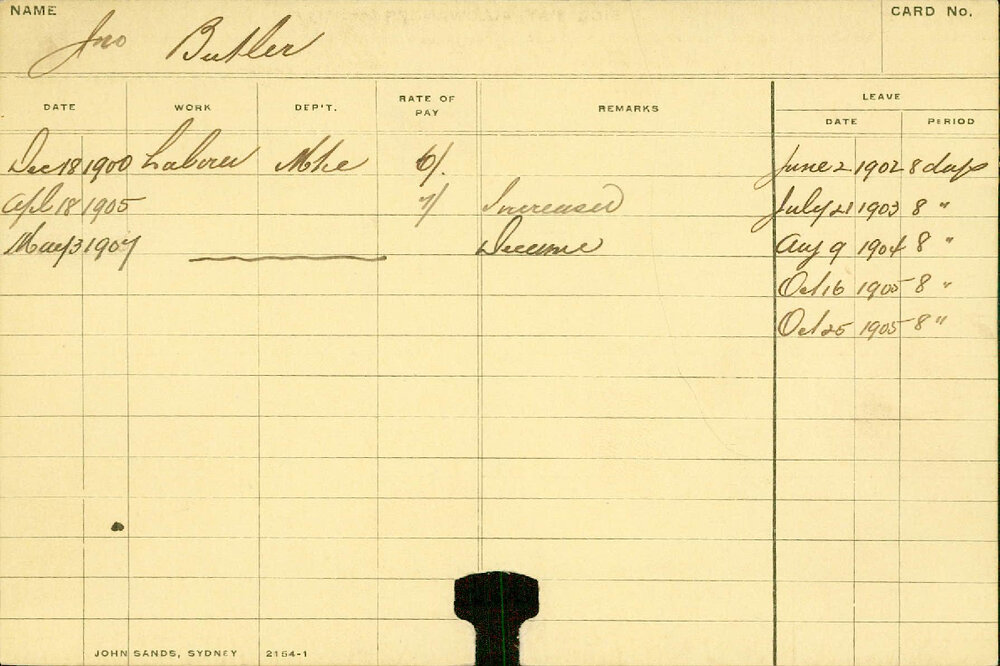 NAME
CARD No.
Jno Butler
DATE WORK DEP'T. RATE OF PAY REMARKS LEAVE
DATE PERIOD
Dec 18 1900 Laborer Mtce 6/. June 2 1902 8 days
Apl 18 1905 7/ Increased July 21 1903 8 "
May 3 1907 Aug 9 1904 8 "
Oct 16 1905 8 "
Oct 25 1905 8 "
JOHN SANDS, SYDNEY 2154-1